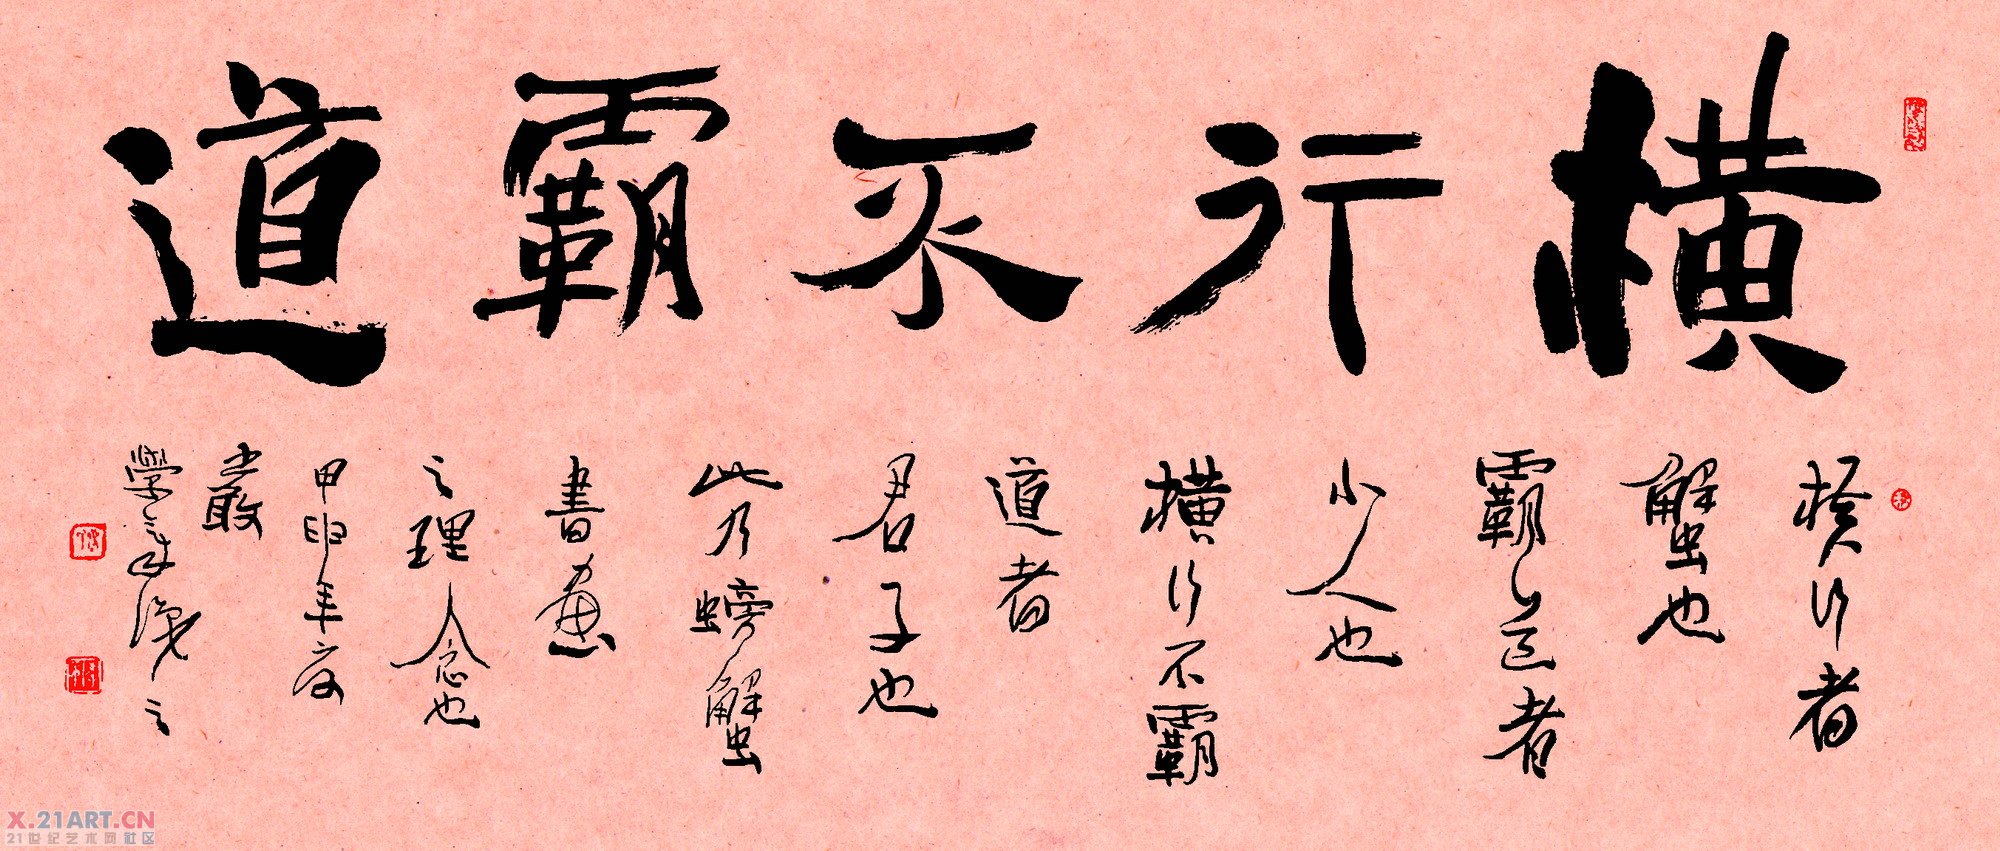 橫行不霸道
橫行者
蟹也
霸道者
小人也
橫行不霸
道者
君子也
此乃螃蟹
書畫
之理念也
甲申年
嚴
學
之
X.21ART.CN
21世纪艺术网社区